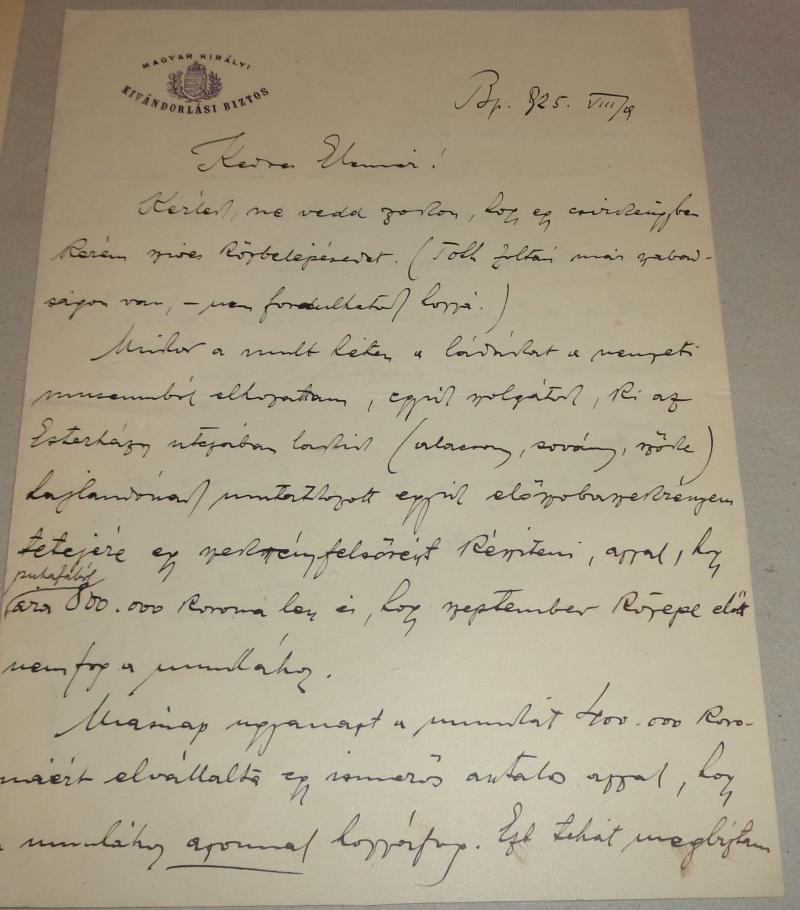 MAGYAR KIRÁLYI
KIVÁNDORLÁSI BIZTOS
Bp. 925. VIII/9
Kedves Elemér!
Kérlek, ne vedd zokon, hogy egy csirkeügyben
kérem szives közbelépésedet. (Tóth Zoltán már szabad-
ságon van, – nem fordulhatok hozzá.)
Mikor a mult héten a ládákat a nemzeti
museumból elhozattam, egyik szolgátok, ki az
Esterházy utczában lakik (alacsony, sovány, szőke)
hajlandónak mutatkozott egyik előszobaszekrényem
tetejére egy szekrényfelsőrészt készíteni, azzal, hogy
puhafából
ára 800.000 korona lesz és, hogy szeptember közepe előtt
nem fog a munkához.
Másnap ugyanazt a munkát 400.000 koro-
náért elvállalta egy ismerős asztalos azzal, hogy
a munkához azonnal hozzáfog. Ezt tehát megbíztam